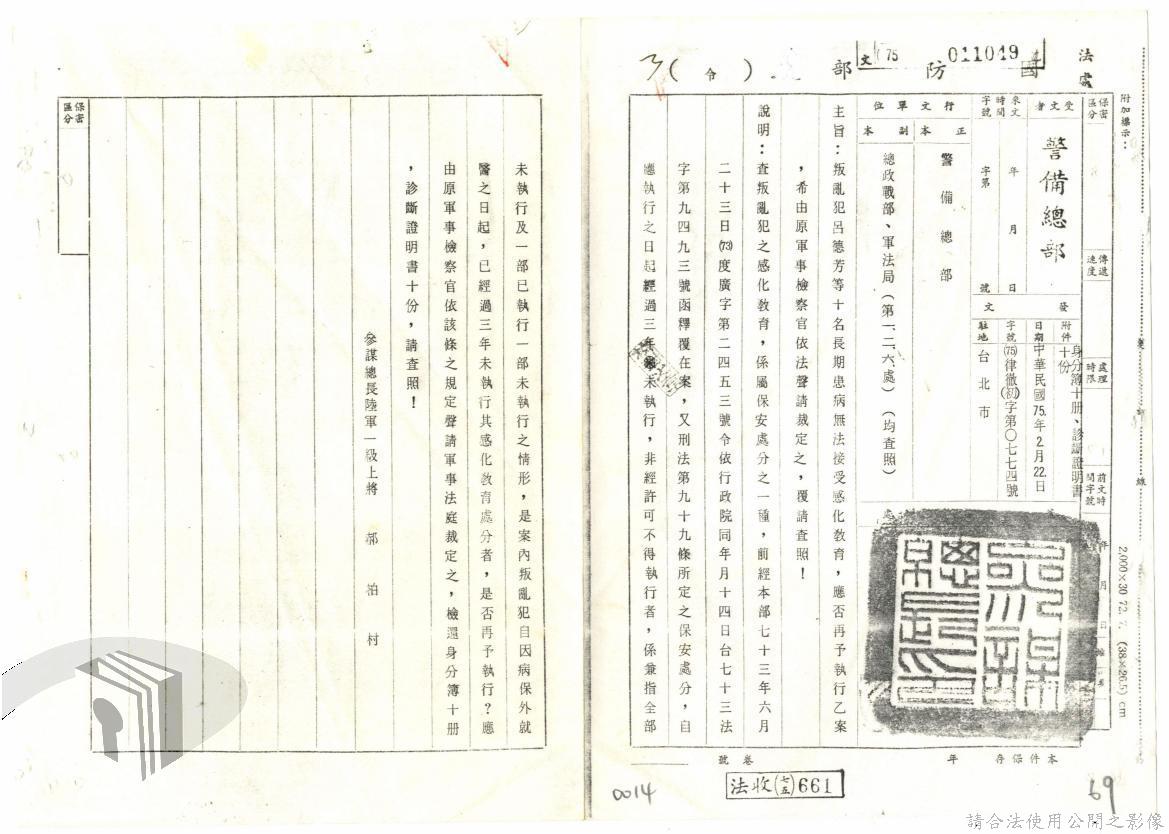 法處
國防部 (令)
文 75 011049
附加標示：
保密區分
傳遞速度
處理時限
前文時間字號
年 月 日
受文者
警備總部
來文時間字號
年 月 日
字第 號
行文單位
正本
警備總部
副本
總政戰部、軍法局（第一二六處）（均查照）
發文
附件
身分簿十册、診斷證明書十份
日期
中華民國75.年2.月22.日
字號
(75)律徹(初)字第〇七七四號
駐地
台北市
主旨：叛亂犯呂德芳等十名長期患病無法接受感化教育，應否再予執行乙案
，希由原軍事檢察官依法聲請裁定之，覆請查照！
說明：查叛亂犯之感化教育，係屬保安處分之一種，前經本部七十三年六月
二十三日(73)度廣字第二四五三號令依行政院同年月十四日台七十三法
字第九四九三號函釋覆在案，又刑法第九十九條所定之保安處分，自
應執行之日起經過三年未執行，非經許可不得執行者，係兼指全部
本件保存 年
卷號
法收(七五)661
0014
69
2,000×30 72. 7. (38×26.5) cm
保密區分
未執行及一部已執行一部未執行之情形，是案內叛亂犯自因病保外就
醫之日起，已經過三年未執行其感化教育處分者，是否再予執行？應
由原軍事檢察官依該條之規定聲請軍事法庭裁定之，檢還身分簿十册
，診斷證明書十份，請查照！
參謀總長陸軍一級上將 郝柏村
請合法使用公開之影像